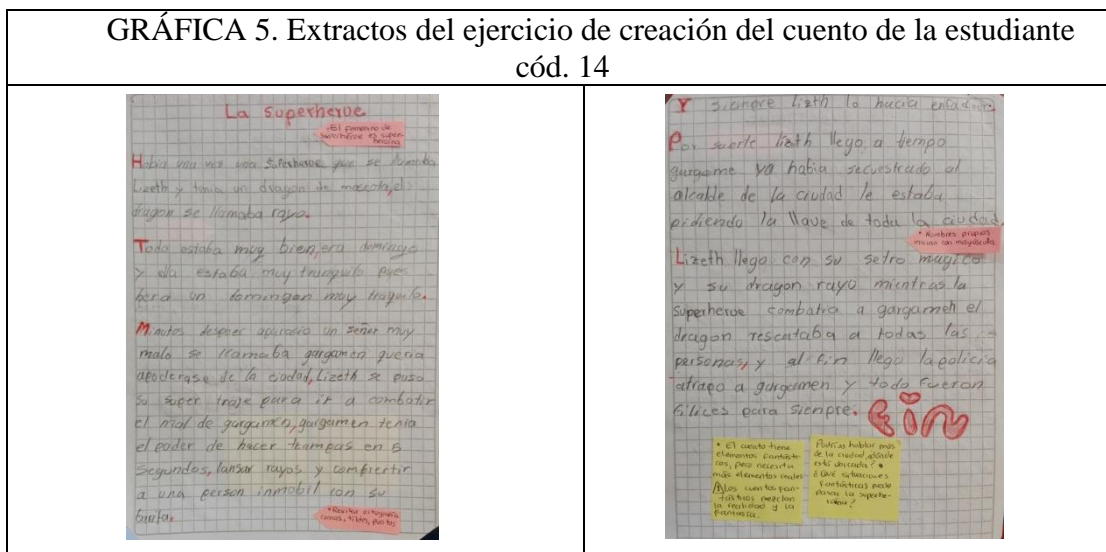 GRÁFICA 5. Extractos del ejercicio de creación del cuento de la estudiante
cód. 14
La superheroe
• El femenino de
superhéroe es super-
heroína
Había una vez una superheroe que se llamaba
Lizeth y tenia un dragon de mascota, el
dragon se llamaba rayo.
Todo estaba muy bien, era domingo
y ella estaba muy tranquila pues
un muy
Minutos despues un señor muy
malo se llamaba gargamen queria
apoderase de la ciudad, Lizeth se puso
su super traje para ir a combatir
el mal de gargamen, gargamen tenia
el poder de hacer trampas en 5
segundos, lansar rayos y
a una person inmobil con su
• Revisar ortografía
comas, tildes, puntos
Y siempre lizth lo hacia
Por suerte lizth llego a tiempo
ya habia secuestrado al
alcalde de la ciudad le estaba
pidiendo la llave de toda la ciudad.
• Nombres propios
inician con mayúscula
Lizeth llego con su setro magico
y su dragon rayo mientras la
superheroe combatia a gargameh el
dragon rescataba a todas las
personas, y al fin llego la policia
atrapo a gargamen y todo fueron
filices para siempre. Fin
• El cuento tiene
elementos fantásti-
cos, pero necesita
más elementos reales
Los cuentos fan-
tásticos mezclan
la realidad y la
fantasía.
Podrías hablar más
de la ciudad, ¿dónde
está ubicada?
¿Qué situaciones
fantásticas puede
pasar la superhe-
roína?